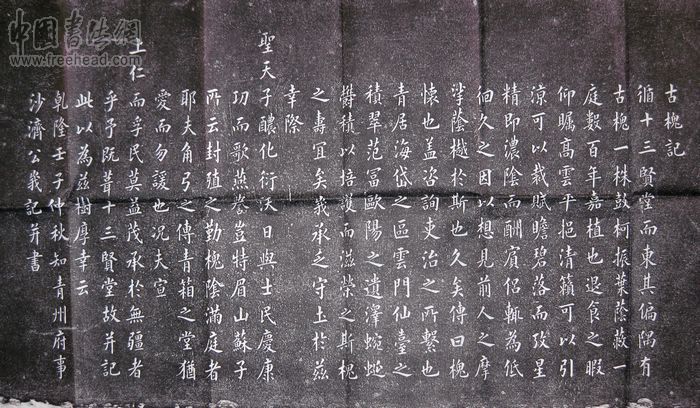 中国書法網
www.freehead.com
古槐記
循十三賢堂而東其偏隅有
古槐一株鼓柯振葉蔭蔽一
庭數百年嘉植也退食之暇
仰矚高雲平挹清籟可以引
涼可以裁賦瞻碧落而攷星
精即濃陰而酬賓侶輒為低
佪久之因以想見前人之摩
挲蔭樾於斯也久矣傳曰槐
懷也盖咨詢吏治之所繫也
青居海岱之區雲門仙臺之
積翠范富歐陽之遺澤蜿蜒
欝積以培護而滋榮之斯槐
之壽宜矣我承乏守土於茲
幸際
聖天子醲化衍沃日與士民慶康
功而歌燕譽豈特眉山蘇子
所云封殖之勤槐陰滿庭者
耶夫角弓之傳青箱之堂猶
愛而勿諼也况夫宣
上仁而孚民莫益茂承於無疆者
乎予既葺十三賢堂故并記
此以為茲樹厚幸云
乾隆壬子仲秋知青州府事
沙濟公峩記并書